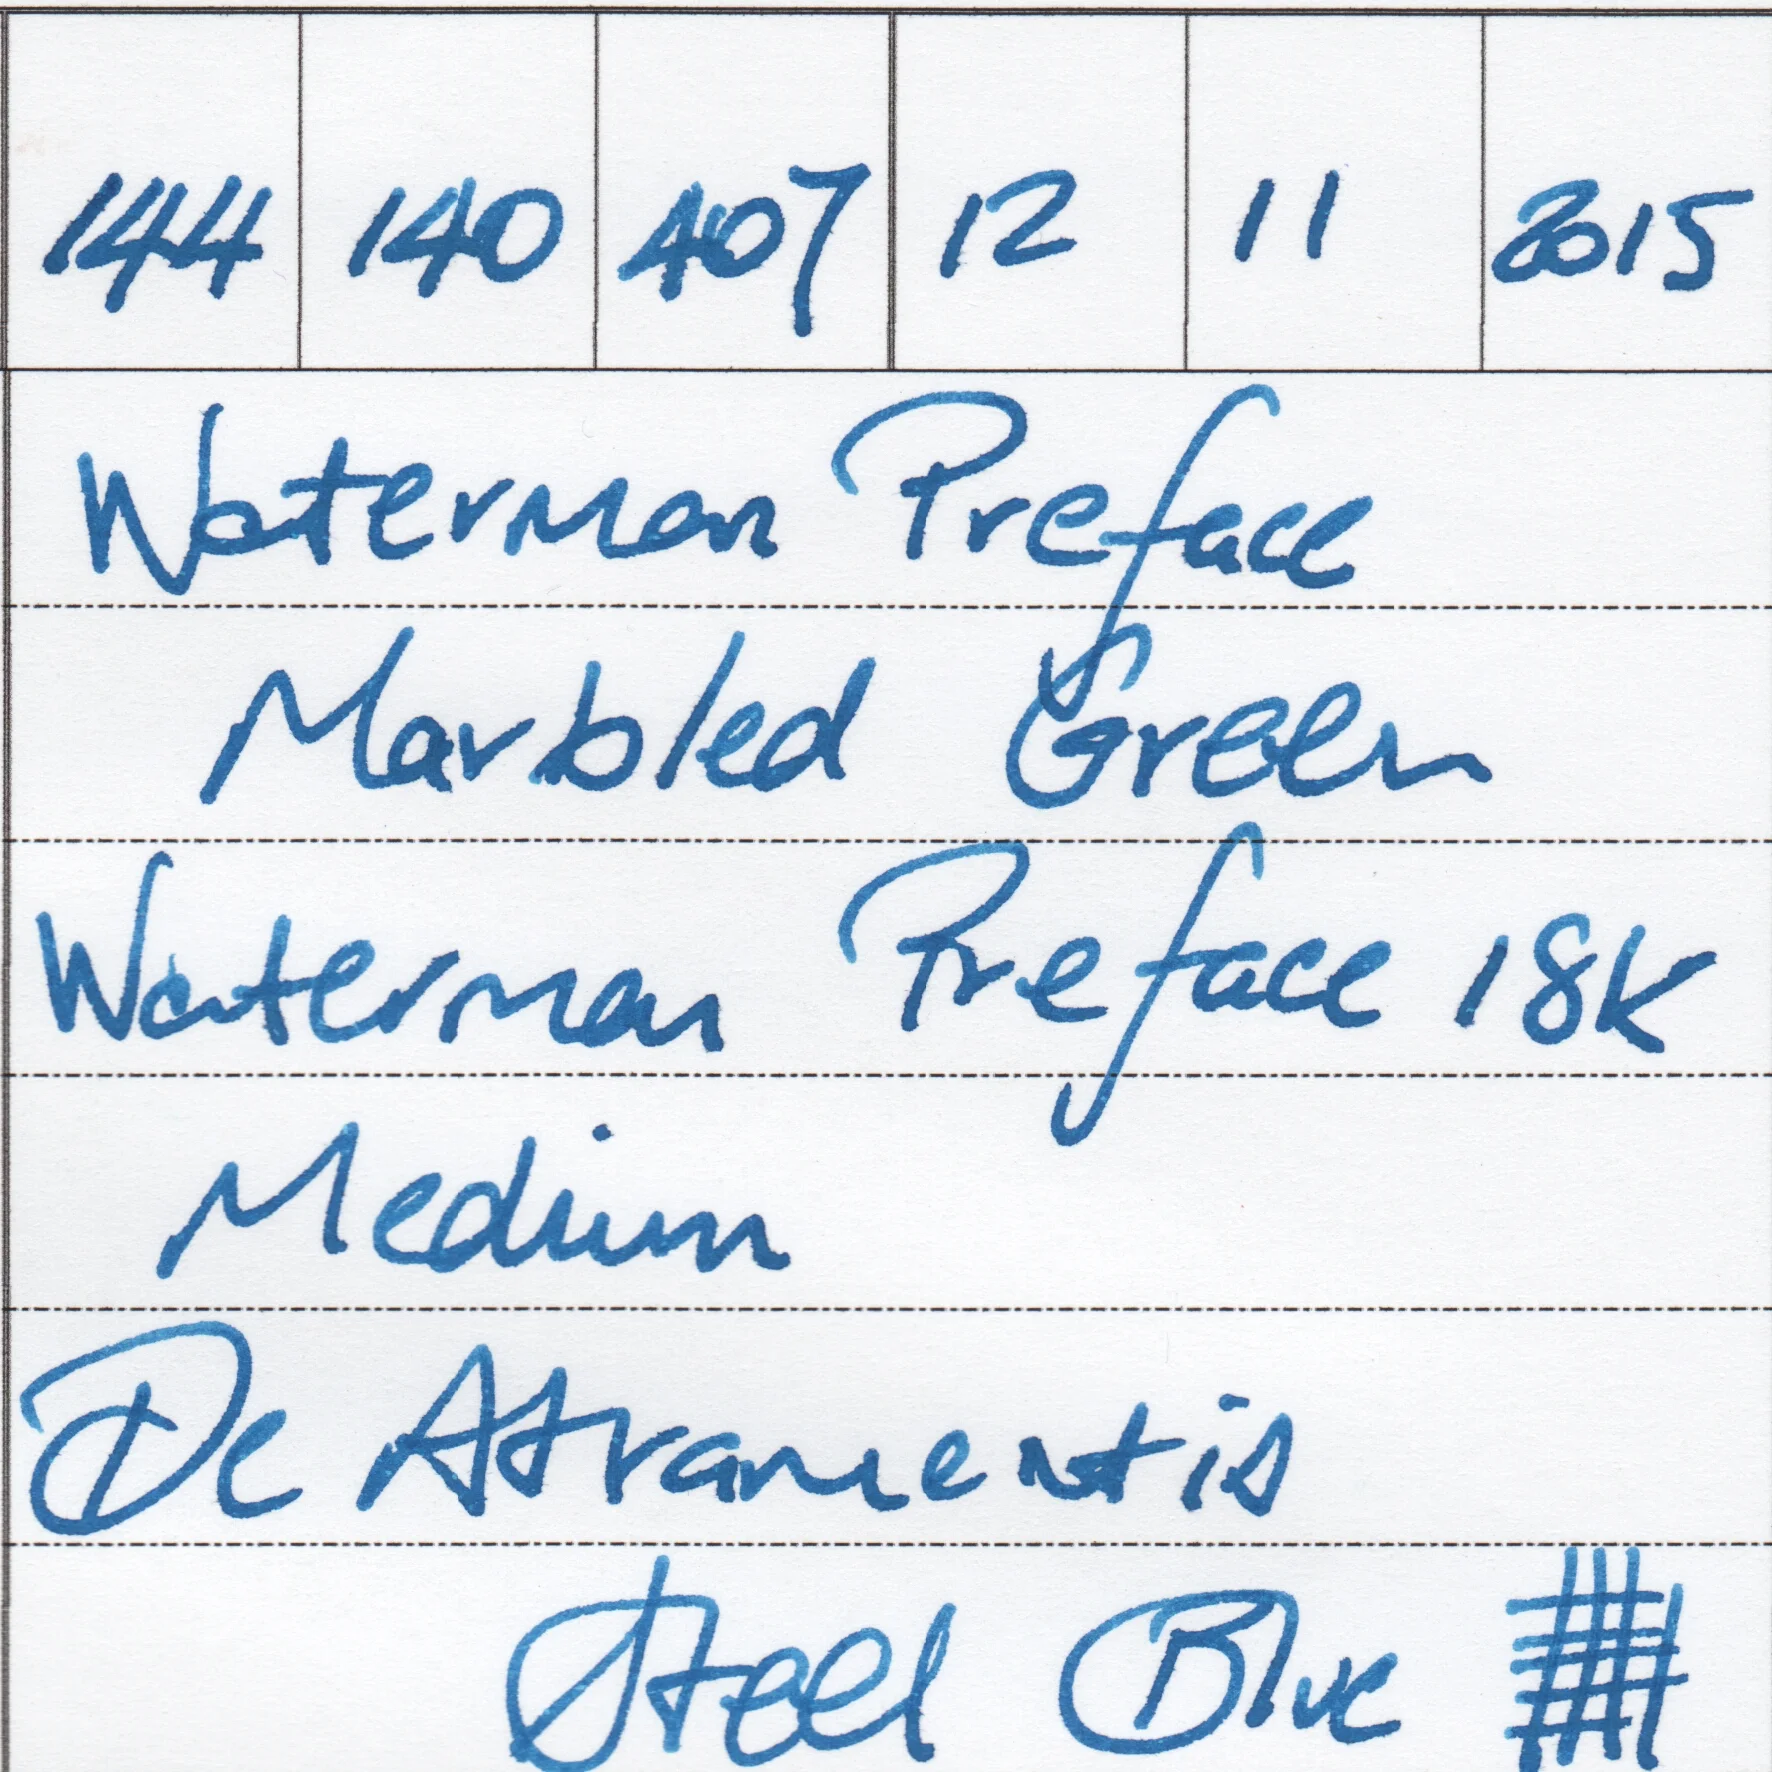 144 140 407 12 11 2015
Waterman Preface
Marbled Green
Waterman Preface 18K
Medium
De Atramentis
Steel Blue